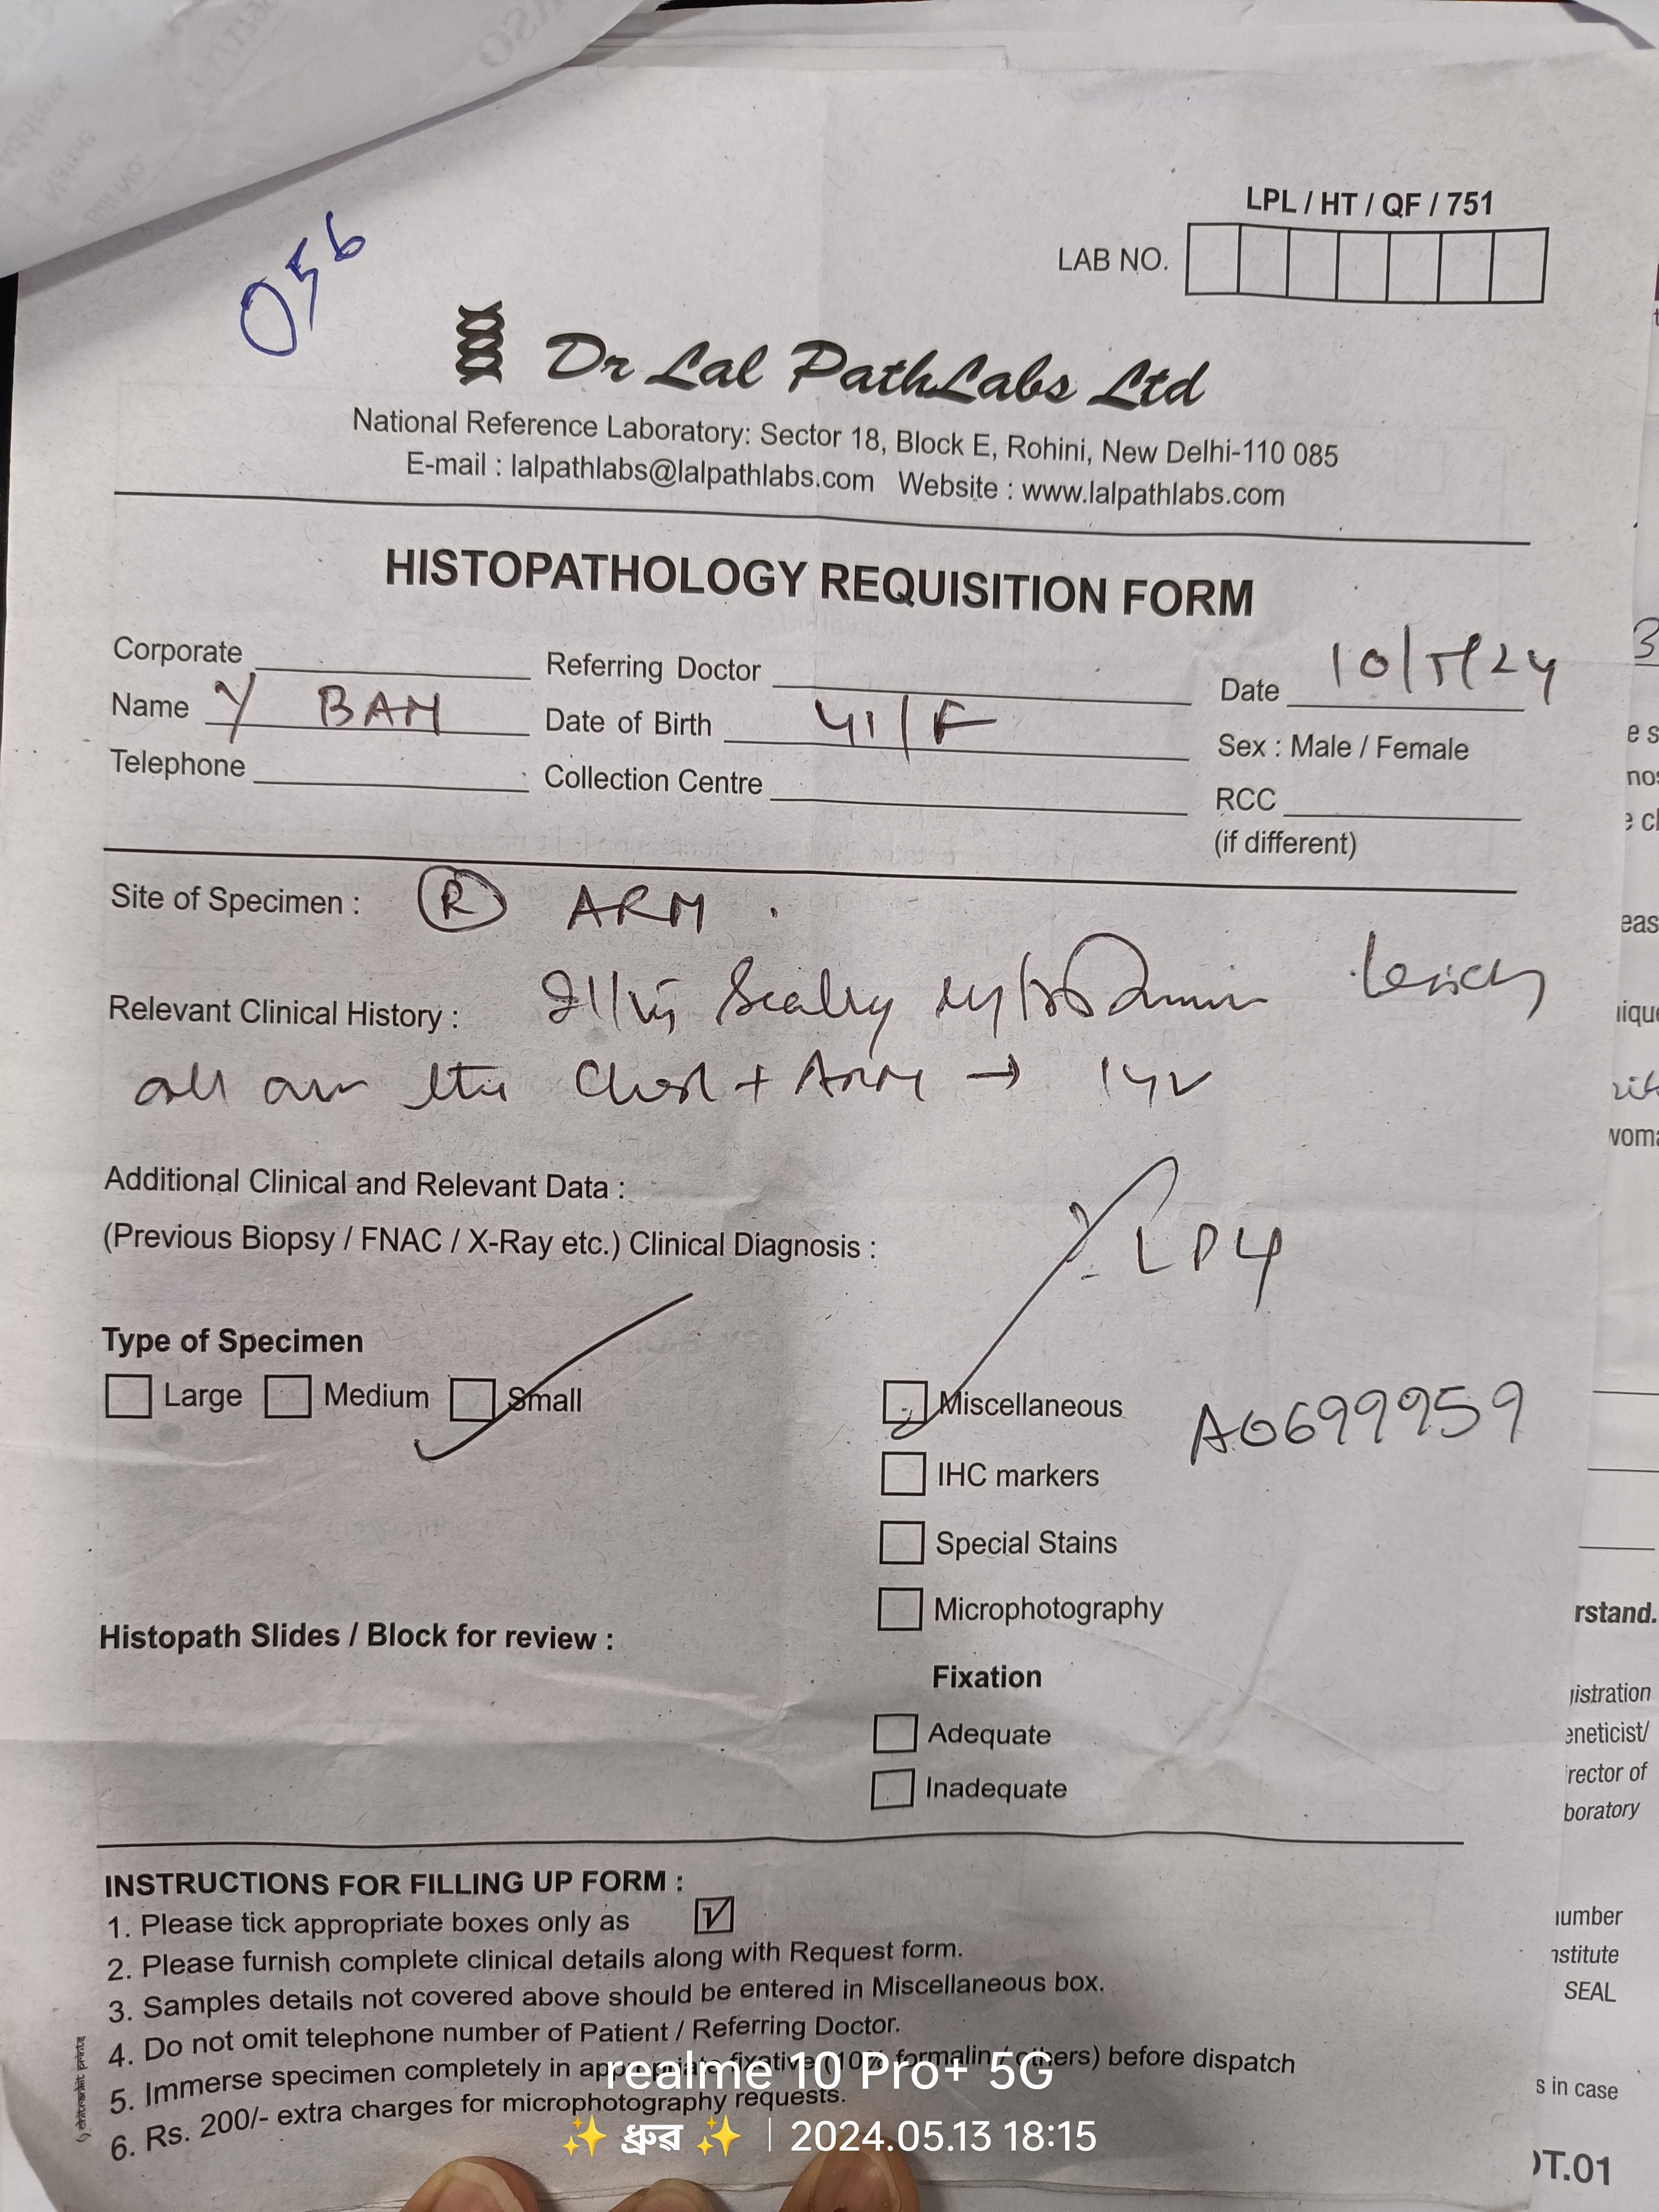 056
LPL / HT / QF / 751
LAB NO.
Dr Lal PathLabs Ltd
National Reference Laboratory: Sector 18, Block E, Rohini, New Delhi-110 085
E-mail : lalpathlabs@lalpathlabs.com Website : www.lalpathlabs.com
HISTOPATHOLOGY REQUISITION FORM
Corporate Referring Doctor Date 10/5/24
Name Y BAM Date of Birth 41/F Sex : Male / Female
Telephone Collection Centre RCC
(if different)
Site of Specimen : R ARM
Relevant Clinical History : Scaly
all over the Chest + ARM → 1yr
Additional Clinical and Relevant Data :
(Previous Biopsy / FNAC / X-Ray etc.) Clinical Diagnosis : ? LP
Type of Specimen
Large Medium Small Miscellaneous A0699959
IHC markers
Special Stains
Microphotography
Histopath Slides / Block for review :
Fixation
Adequate
Inadequate
INSTRUCTIONS FOR FILLING UP FORM :
1. Please tick appropriate boxes only as
2. Please furnish complete clinical details along with Request form.
3. Samples details not covered above should be entered in Miscellaneous box.
4. Do not omit telephone number of Patient / Referring Doctor.
5. Immerse specimen completely in appropriate fixative (10% formalin / others) before dispatch
6. Rs. 200/- extra charges for microphotography requests.
realme 10 Pro+ 5G
✨ ধ্রুৱ ✨ | 2024.05.13 18:15
rstand.
gistration
eneticist/
rector of
boratory
number
nstitute
SEAL
s in case
OT.01